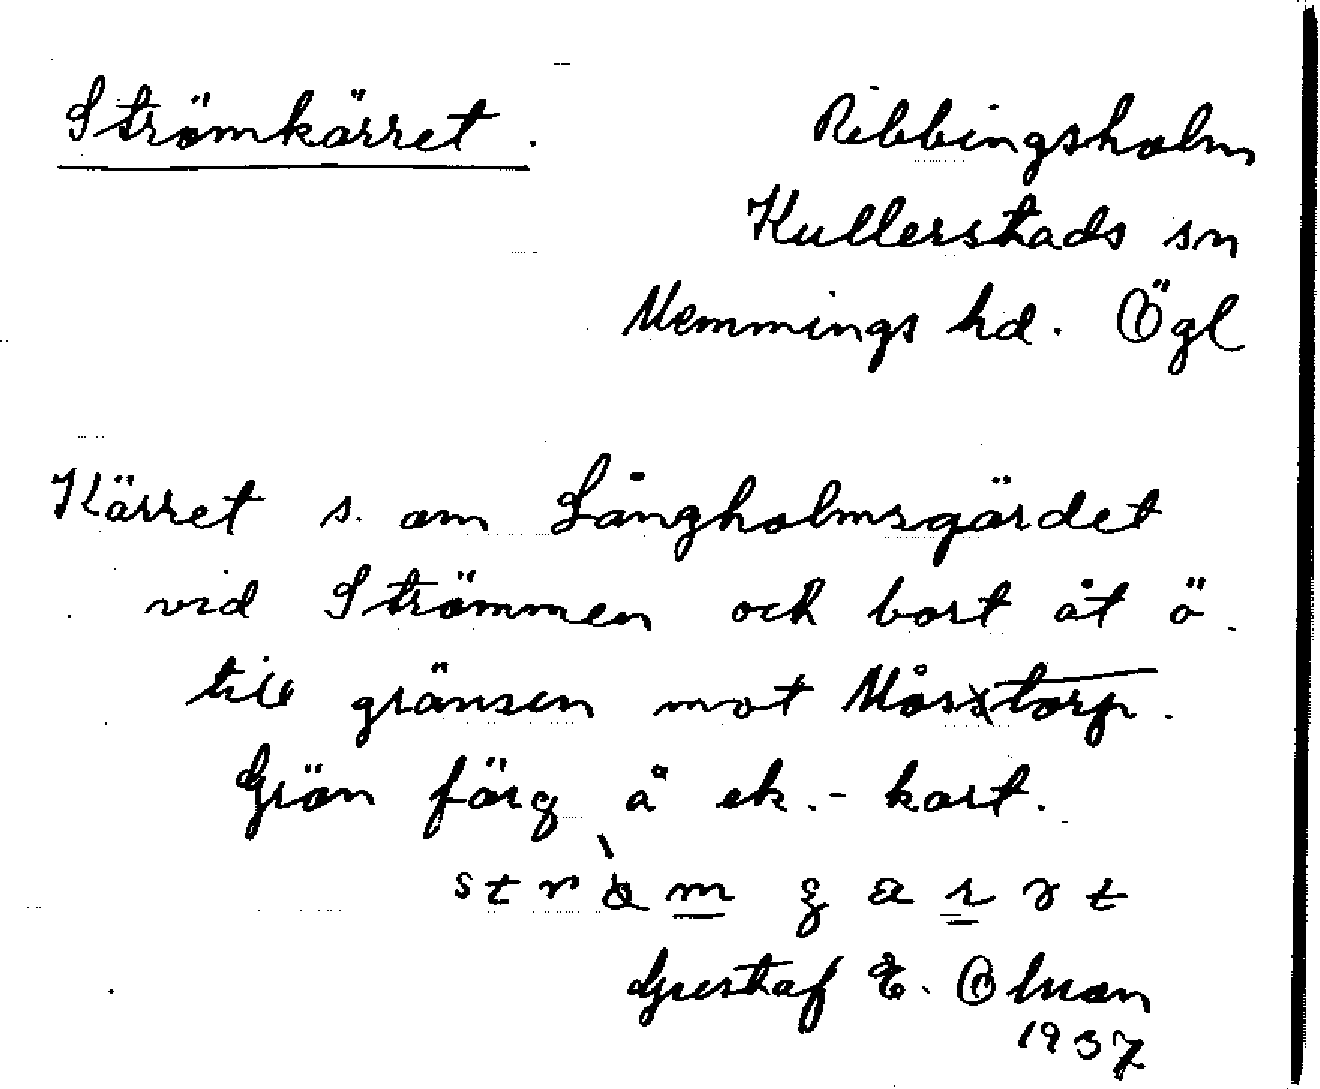 Strömkärret.
Ribbingsholm
Kullerstads sn
Memmings hd. Ögl
Kärret s. om Långholmsgärdet
vid Strömmen och bort åt ö
till gränsen mot Måsstorp.
Grön färg å ek.-kart.
Gustaf E. Olman
1937